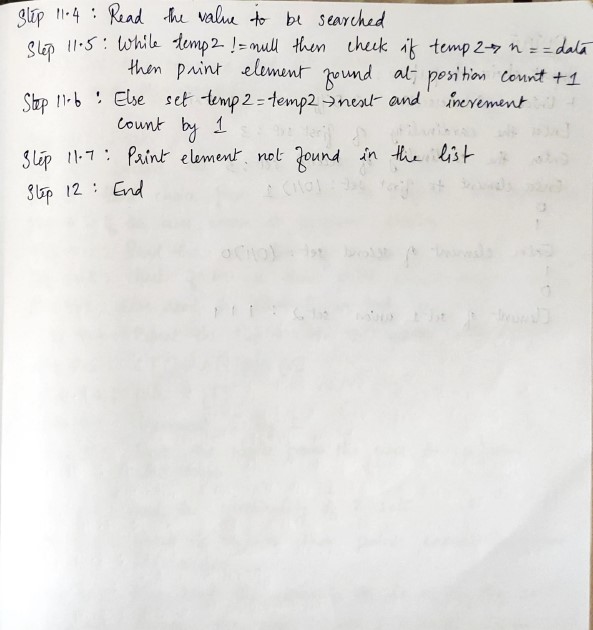 Step 11.4 : Read the value to be searched
Step 11.5 : While temp2 != null then check if temp2→n == data
then print element found at position count +1
Step 11.6 : Else set temp2 = temp2→next and increment
count by 1
Step 11.7 : Print element not found in the list
Step 12 : End